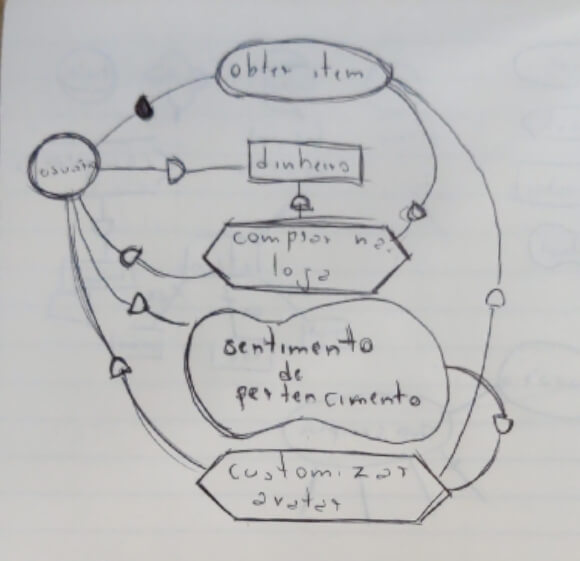 obter item
usuário
dinheiro
comprar na
loja
sentimento
de
pertencimento
customizar
avatar